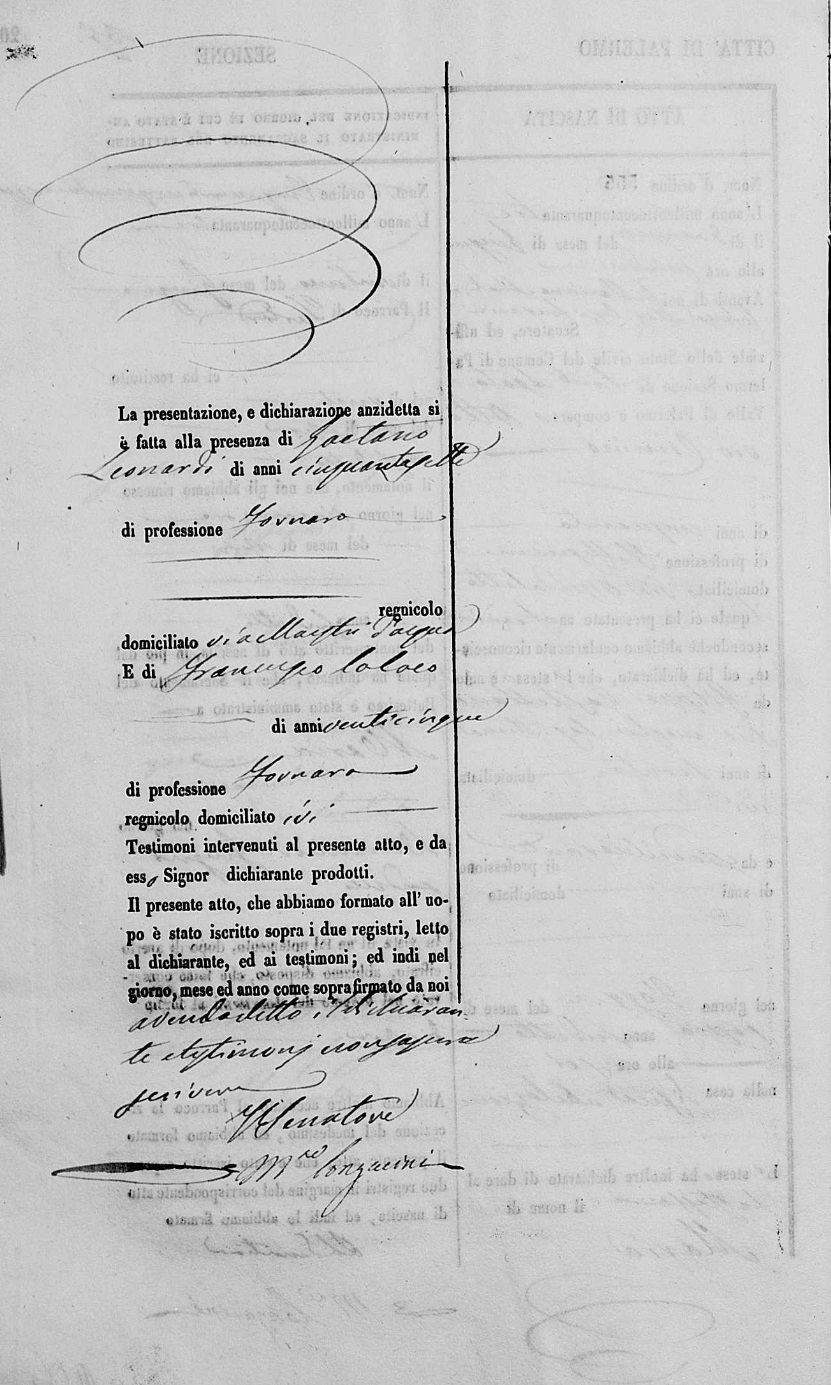 La presentazione, e dichiarazione anzidetta si
è fatta alla presenza di Gaetano
Leonardi di anni cinquantasette
di professione Fornaro
regnicolo
domiciliato via Mastri d'acqua
E di Francesco Loloco
di anni venticinque
di professione Fornaro
regnicolo domiciliato ivi
Testimoni intervenuti al presente atto, e da
esso Signor dichiarante prodotti.
Il presente atto, che abbiamo formato all' uo-
po è stato iscritto sopra i due registri, letto
al dichiarante, ed ai testimoni; ed indi nel
giorno, mese ed anno come sopra firmato da noi
avendo detto il dichiaran
te e testimonj non sapere
scrivere
Il Senatore